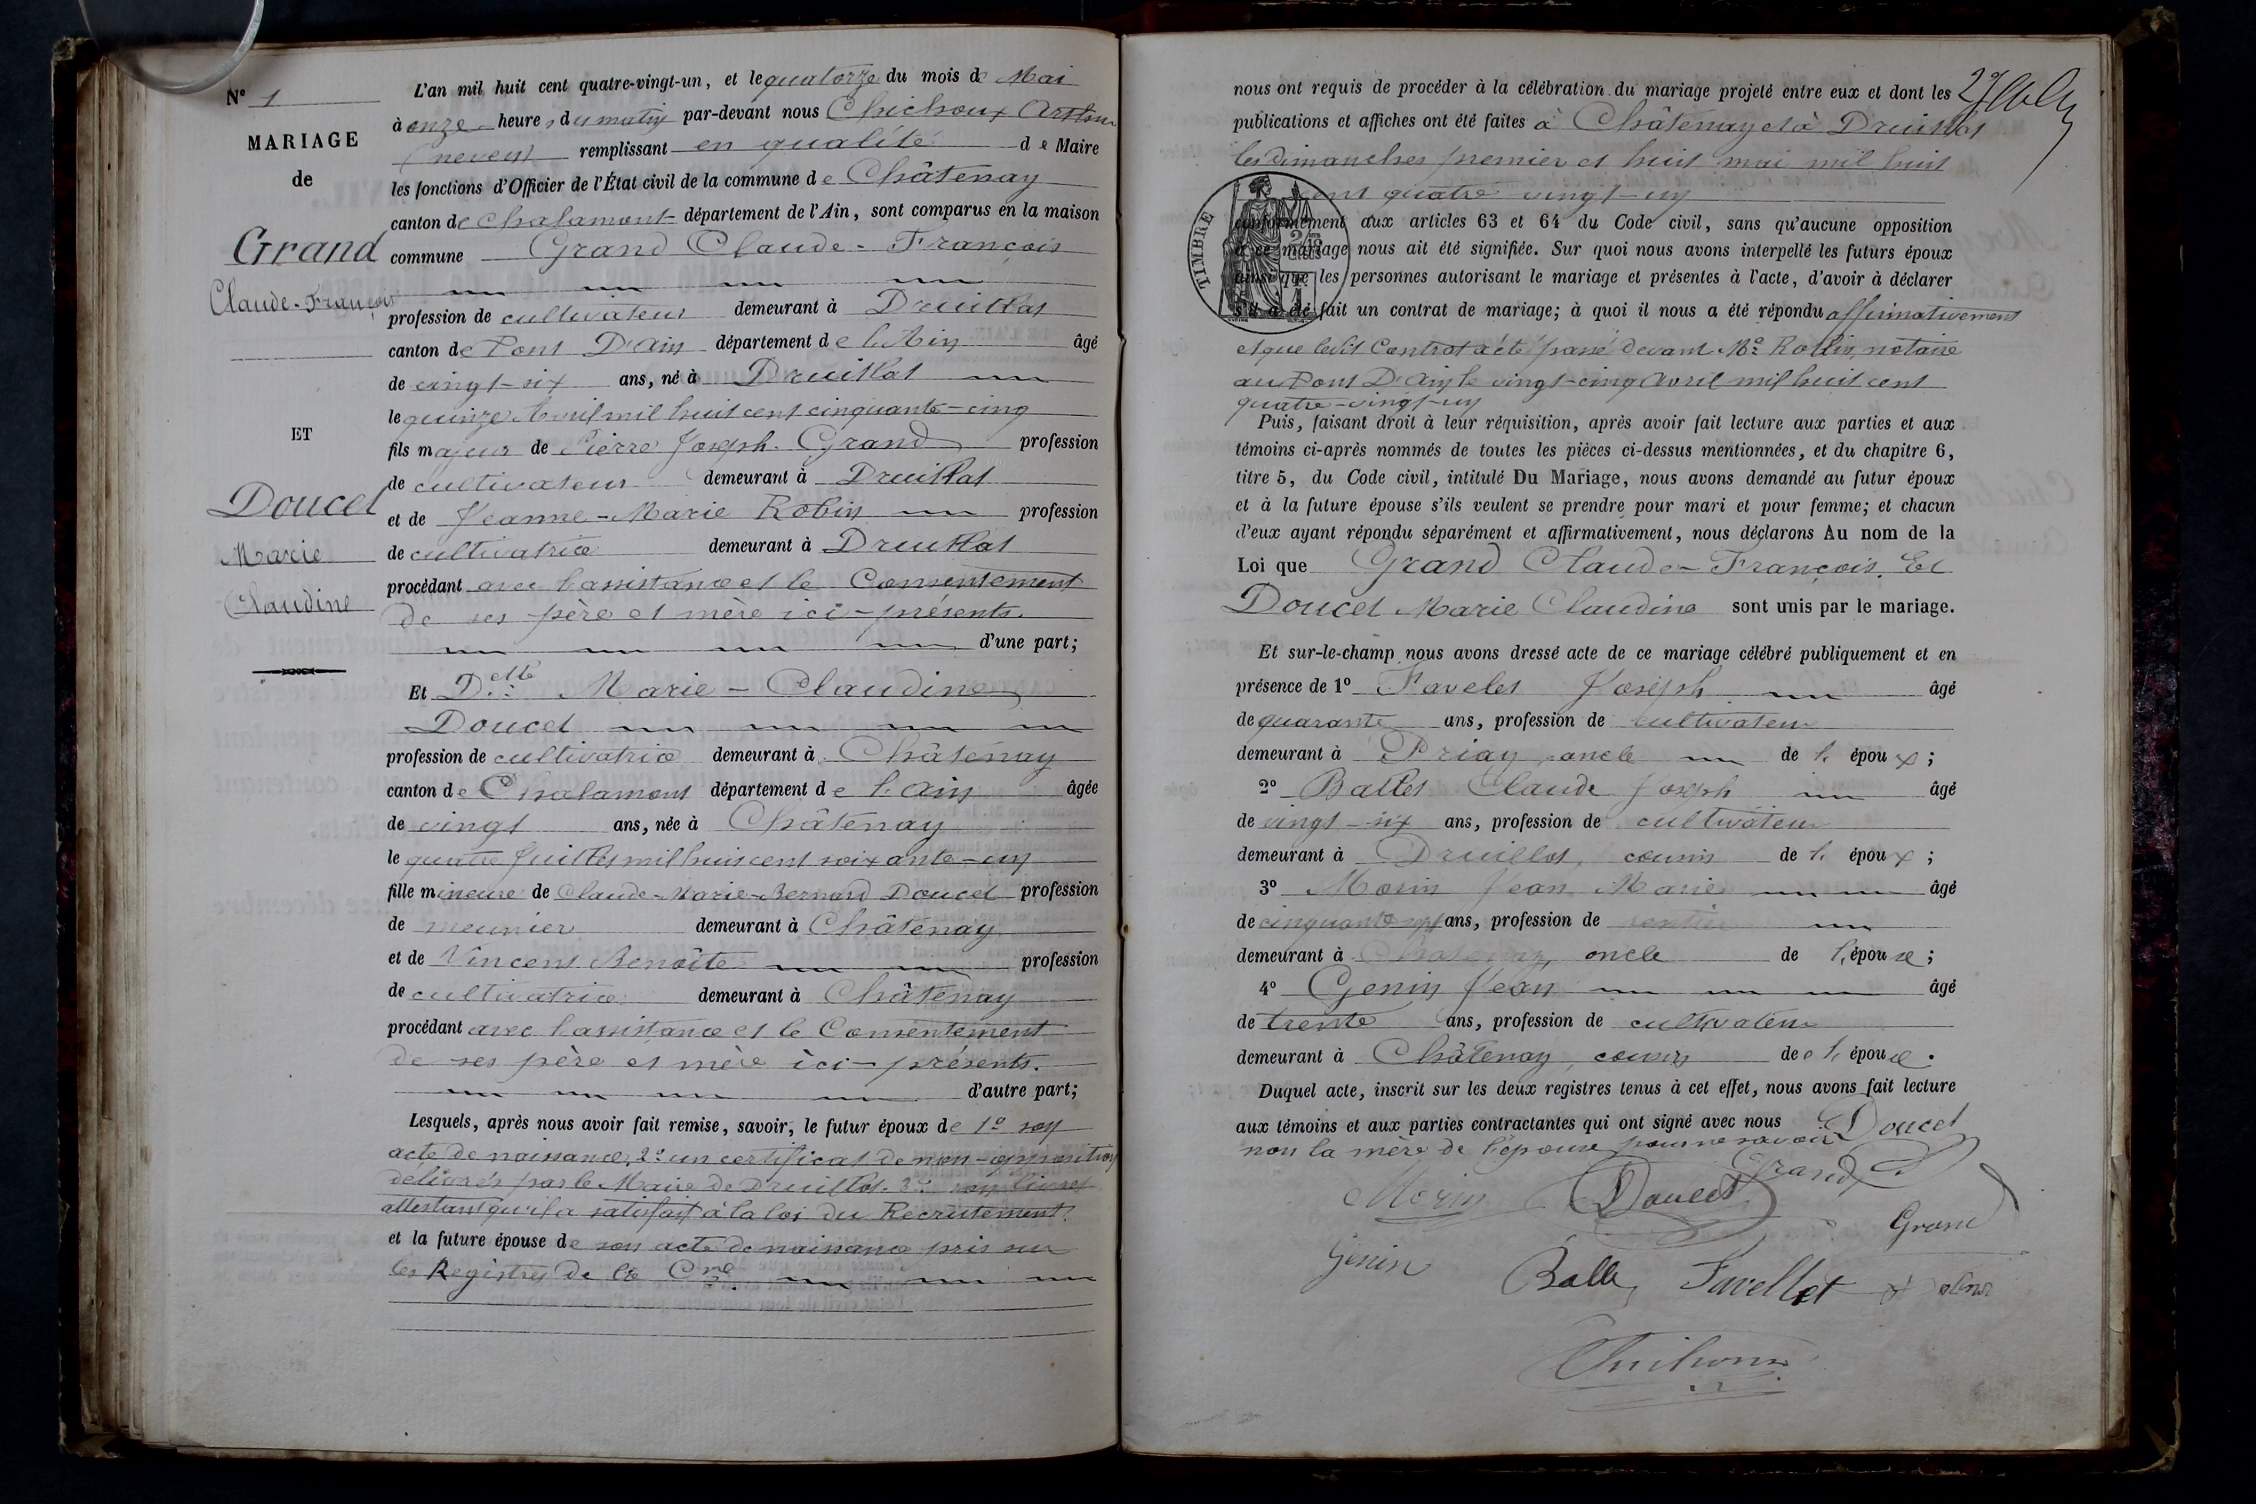 N° 1
MARIAGE
de
Grand
Claude-François
ET
Doucet
Marie
Claudine
L'an mil huit cent quatre-vingt-un, et le quatorze du mois de Mai
à onze heures du matin par-devant nous Chichoux
(neveu) remplissant en qualité de Maire
les fonctions d'Officier de l'État civil de la commune de Châtenay
canton de Chalamont département de l'Ain, sont comparus en la maison
commune Grand Claude-François
profession de cultivateur demeurant à Druillat
canton de Pont D'Ain département de l'Ain âgé
de vingt-six ans, né à Druillat
le quinze Avril mil huit cent cinquante-cinq
fils majeur de Pierre Joseph Grand profession
de cultivateur demeurant à Druillat
et de Jeanne-Marie Robin profession
de cultivatrice demeurant à Druillat
procédant avec l'assistance et le Consentement
de ses père et mère ici-présents
d'une part;
Et Delle Marie-Claudine
Doucet
profession de cultivatrice demeurant à Châtenay
canton de Chalamont département de l'Ain âgée
de vingt ans, née à Châtenay
le quatre Juillet mil huit cent soixante-un
fille mineure de Claude-Marie-Bernard Doucet profession
de meunier demeurant à Châtenay
et de Vincent Benoîte profession
de cultivatrice demeurant à Châtenay
procédant avec l'assistance et le Consentement
de ses père et mère ici-présents.
d'autre part;
Lesquels, après nous avoir fait remise, savoir, le futur époux de 1° son
acte de naissance, 2° un certificat de non-opposition
délivrés par le Maire de Druillat. 3° son livret
attestant qu'il a satisfait à la loi du Recrutement.
et la future épouse de son acte de naissance pris sur
les Registres de la Cne
nous ont requis de procéder à la célébration du mariage projeté entre eux et dont les
publications et affiches ont été faites à Châtenay et à Druillat
les dimanches premier et huit mai mil huit
cent quatre vingt-un
TIMBRE
conformément aux articles 63 et 64 du Code civil, sans qu'aucune opposition
à ce mariage nous ait été signifiée. Sur quoi nous avons interpellé les futurs époux
ainsi que les personnes autorisant le mariage et présentes à l'acte, d'avoir à déclarer
s'il a été fait un contrat de mariage; à quoi il nous a été répondu affirmativement
et que ledit Contrat a été passé devant Me notaire
au Pont D'Ain le vingt-cinq Avril mil huit cent
quatre-vingt-un
Puis, faisant droit à leur réquisition, après avoir fait lecture aux parties et aux
témoins ci-après nommés de toutes les pièces ci-dessus mentionnées, et du chapitre 6,
titre 5, du Code civil, intitulé Du Mariage, nous avons demandé au futur époux
et à la future épouse s'ils veulent se prendre pour mari et pour femme; et chacun
d'eux ayant répondu séparément et affirmativement, nous déclarons Au nom de la
Loi que Grand Claude-François. Et
Doucet Marie Claudine sont unis par le mariage.
Et sur-le-champ nous avons dressé acte de ce mariage célébré publiquement et en
présence de 1° Favelet Joseph âgé
de quarante ans, profession de cultivateur
demeurant à Priay, oncle de l'époux;
2° Ballet Claude Joseph âgé
de vingt-six ans, profession de cultivateur
demeurant à Druillat, cousin de l'époux;
3° Morin Jean Marie âgé
de cinquante ans, profession de rentier
demeurant à Châtenay, oncle de l'épouse;
4° Genin Jean âgé
de trente ans, profession de cultivateur
demeurant à Châtenay, cousin de l'épouse.
Duquel acte, inscrit sur les deux registres tenus à cet effet, nous avons fait lecture
aux témoins et aux parties contractantes qui ont signé avec nous Doucet
non la mère de l'épouse pour ne savoir
Grand
Morin Doucet
Grand
Genin
Balle Favellet